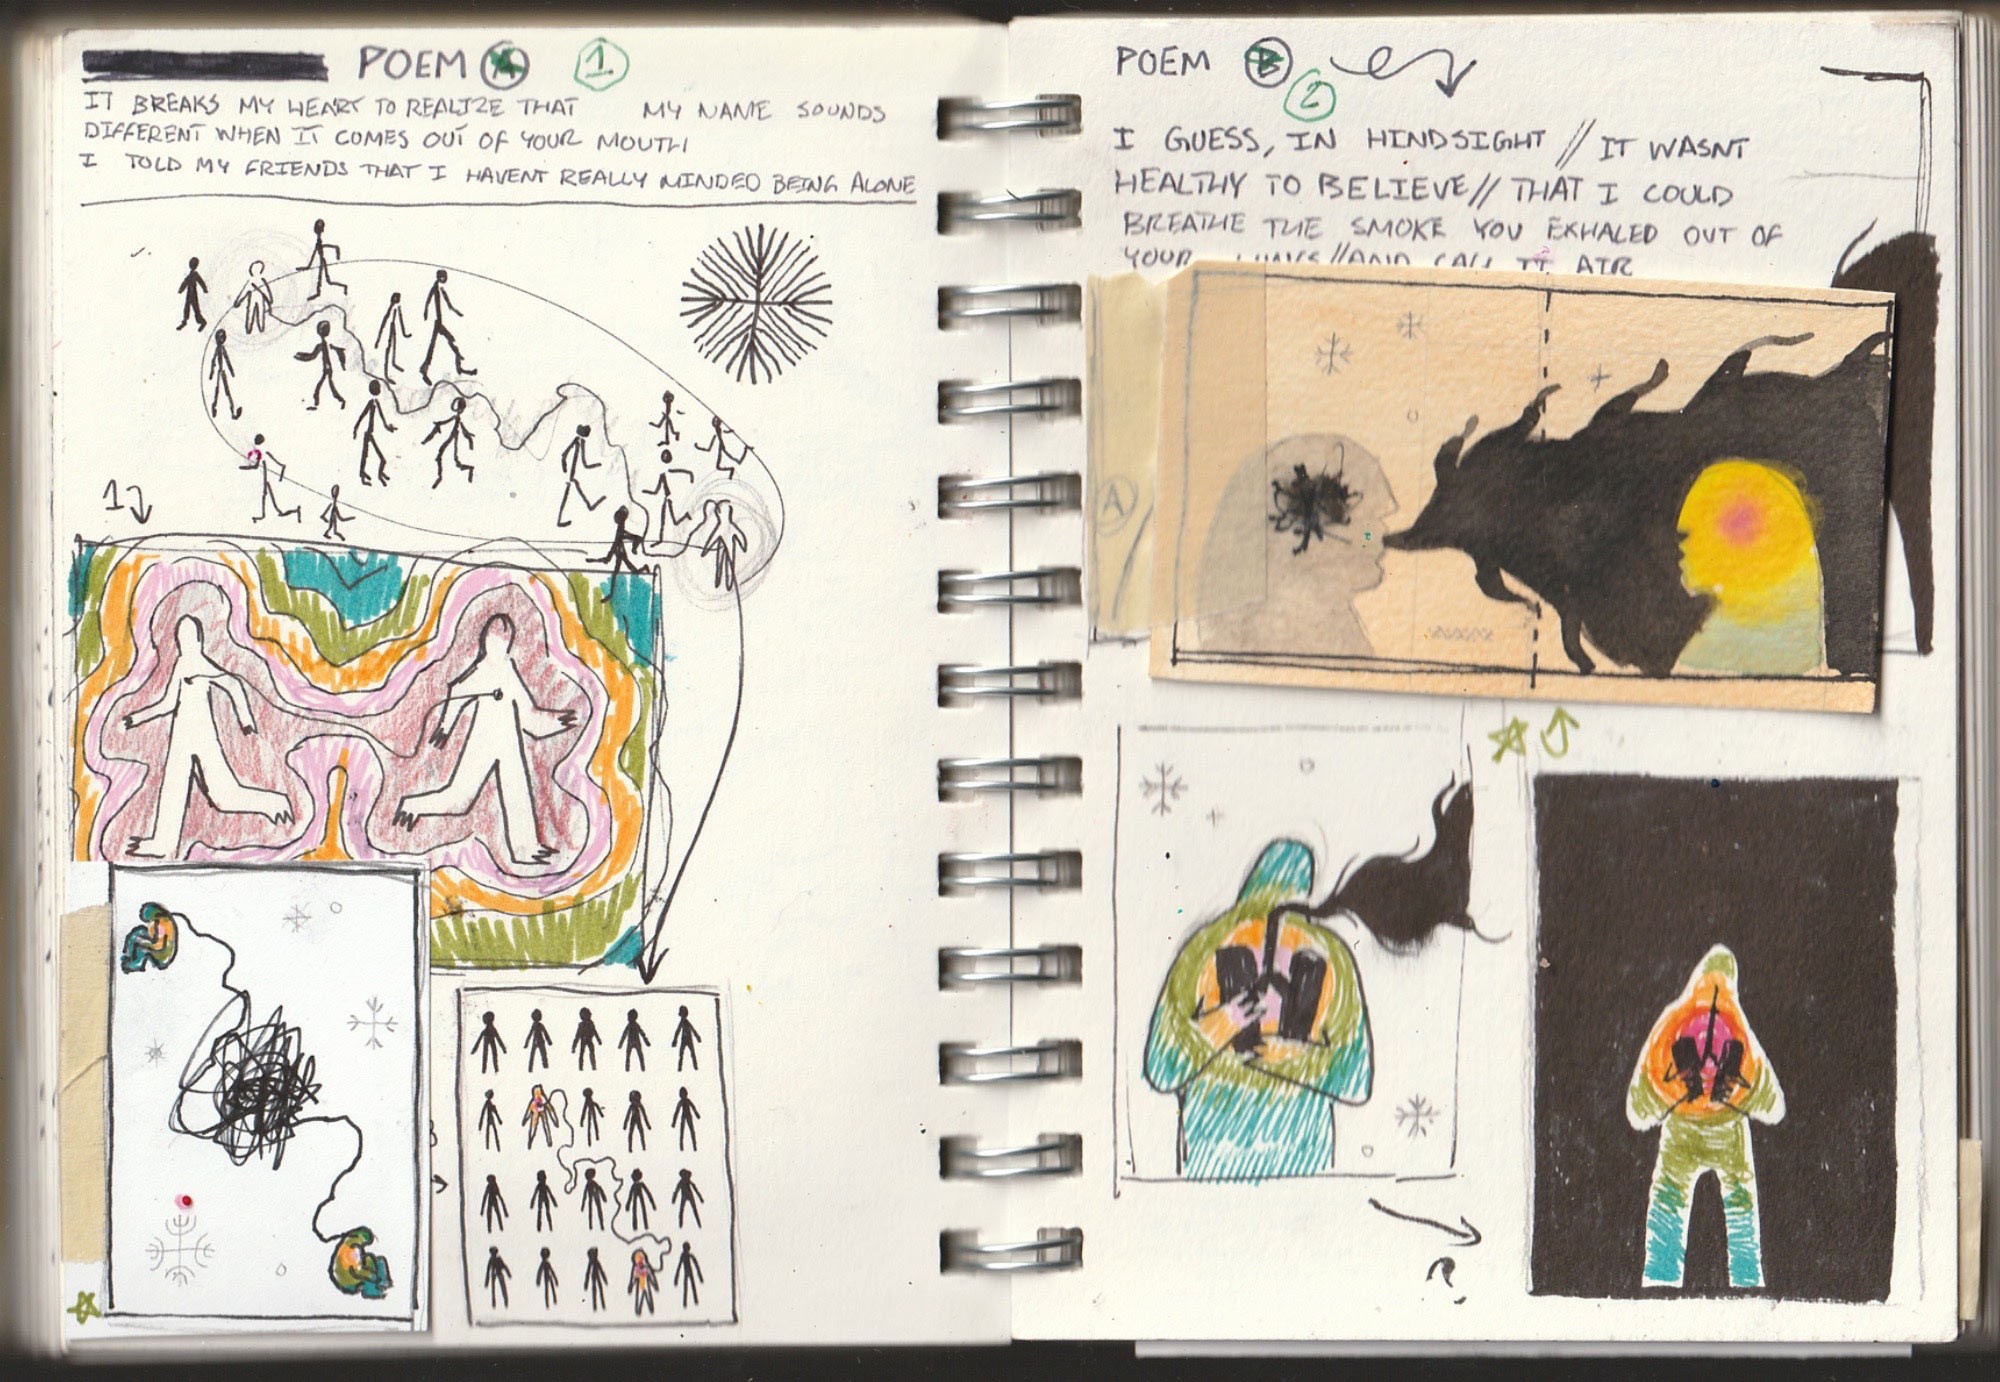 POEM A 1
IT BREAKS MY HEART TO REALIZE THAT MY NAME SOUNDS
DIFFERENT WHEN IT COMES OUT OF YOUR MOUTH
I TOLD MY FRIENDS THAT I HAVENT REALLY MINDED BEING ALONE
1
POEM B
2
I GUESS, IN HINDSIGHT // IT WASNT
HEALTHY TO BELIEVE // THAT I COULD
BREATHE THE SMOKE YOU EXHALED OUT OF
YOUR LUNGS // AND CALL IT AIR
A
?